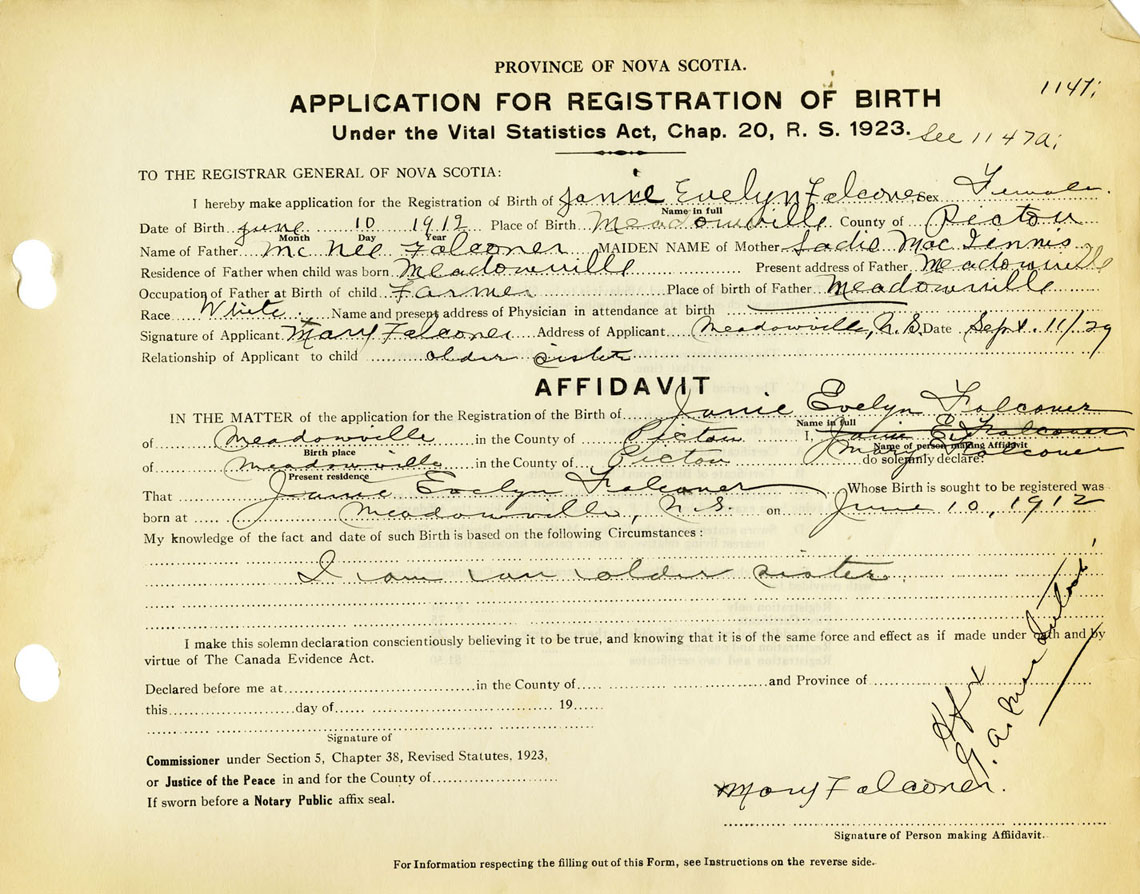 PROVINCE OF NOVA SCOTIA.
1147;
APPLICATION FOR REGISTRATION OF BIRTH
Under the Vital Statistics Act, Chap. 20, R. S. 1923. See 1147a;
TO THE REGISTRAR GENERAL OF NOVA SCOTIA:
I hereby make application for the Registration of Birth of Janie Evelyn Falconer Sex Female.
Name in full
Date of Birth June 10 1912 Place of Birth Meadowville County of Pictou
Month Day Year
Name of Father McNee Falconer MAIDEN NAME of Mother Sadie MacInnis
Residence of Father when child was born Meadowville Present address of Father Meadowville
Occupation of Father at Birth of child Farmer Place of birth of Father Meadowville
Race White. Name and present address of Physician in attendance at birth
Signature of Applicant Mary Falconer Address of Applicant Meadowville, N.S. Date Sept. 11/29
Relationship of Applicant to child older sister
AFFIDAVIT
IN THE MATTER of the application for the Registration of the Birth of Janie Evelyn Falconer
Name in full
of Meadowville in the County of Pictou I, Janie E. Falconer
Birth place Name of person making Affidavit
Mary Falconer
of Meadowville in the County of Pictou do solemnly declare:
Present residence
That Janie Evelyn Falconer Whose Birth is sought to be registered was
born at Meadowville, N.S. on June 10, 1912
My knowledge of the fact and date of such Birth is based on the following Circumstances:
I am an older sister.
I make this solemn declaration conscientiously believing it to be true, and knowing that it is of the same force and effect as if made under oath and by
virtue of The Canada Evidence Act.
Declared before me at in the County of and Province of
this day of 19
Signature of
Commissioner under Section 5, Chapter 38, Revised Statutes, 1923,
or Justice of the Peace in and for the County of
If sworn before a Notary Public affix seal.
Hfx
Mary Falconer.
Signature of Person making Affidavit.
For Information respecting the filling out of this Form, see Instructions on the reverse side.